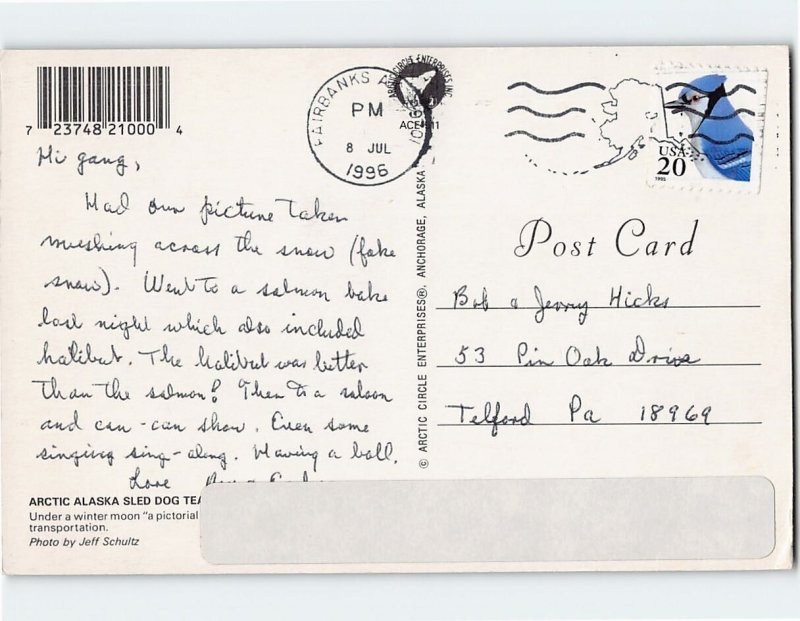 7 23748 21000 4
FAIRBANKS A
PM
8 JUL
1996
ARCTIC CIRCLE ENTERPRISES INC.
USA
20
1995
Post Card
Hi gang,
Had our picture taken
mushing across the snow (fake
snow). Went to a salmon bake
last night which also included
halibut. The halibut was better
than the salmon! Then to a saloon
and can-can show. Even some
singing sing-along. Having a ball.
Love
© ARCTIC CIRCLE ENTERPRISES®, ANCHORAGE, ALASKA
Bob & Jerry Hicks
53 Pin Oak Drive
Telford Pa 18969
ARCTIC ALASKA SLED DOG TEA
Under a winter moon "a pictorial
transportation.
Photo by Jeff Schultz